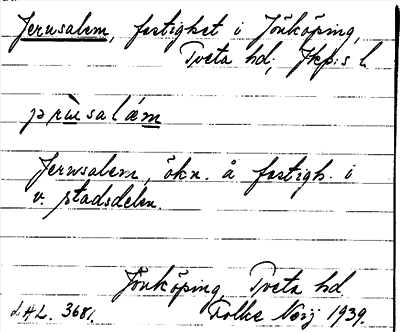 Jerusalem, fastighet i Jönköping,
Tveta hd; Jkp:s l.
Jerusalem, ökn. å fastigh. i
v. stadsdelen.
Jönköping, Tveta hd
LAL. 3681. Folke Neij 1939.